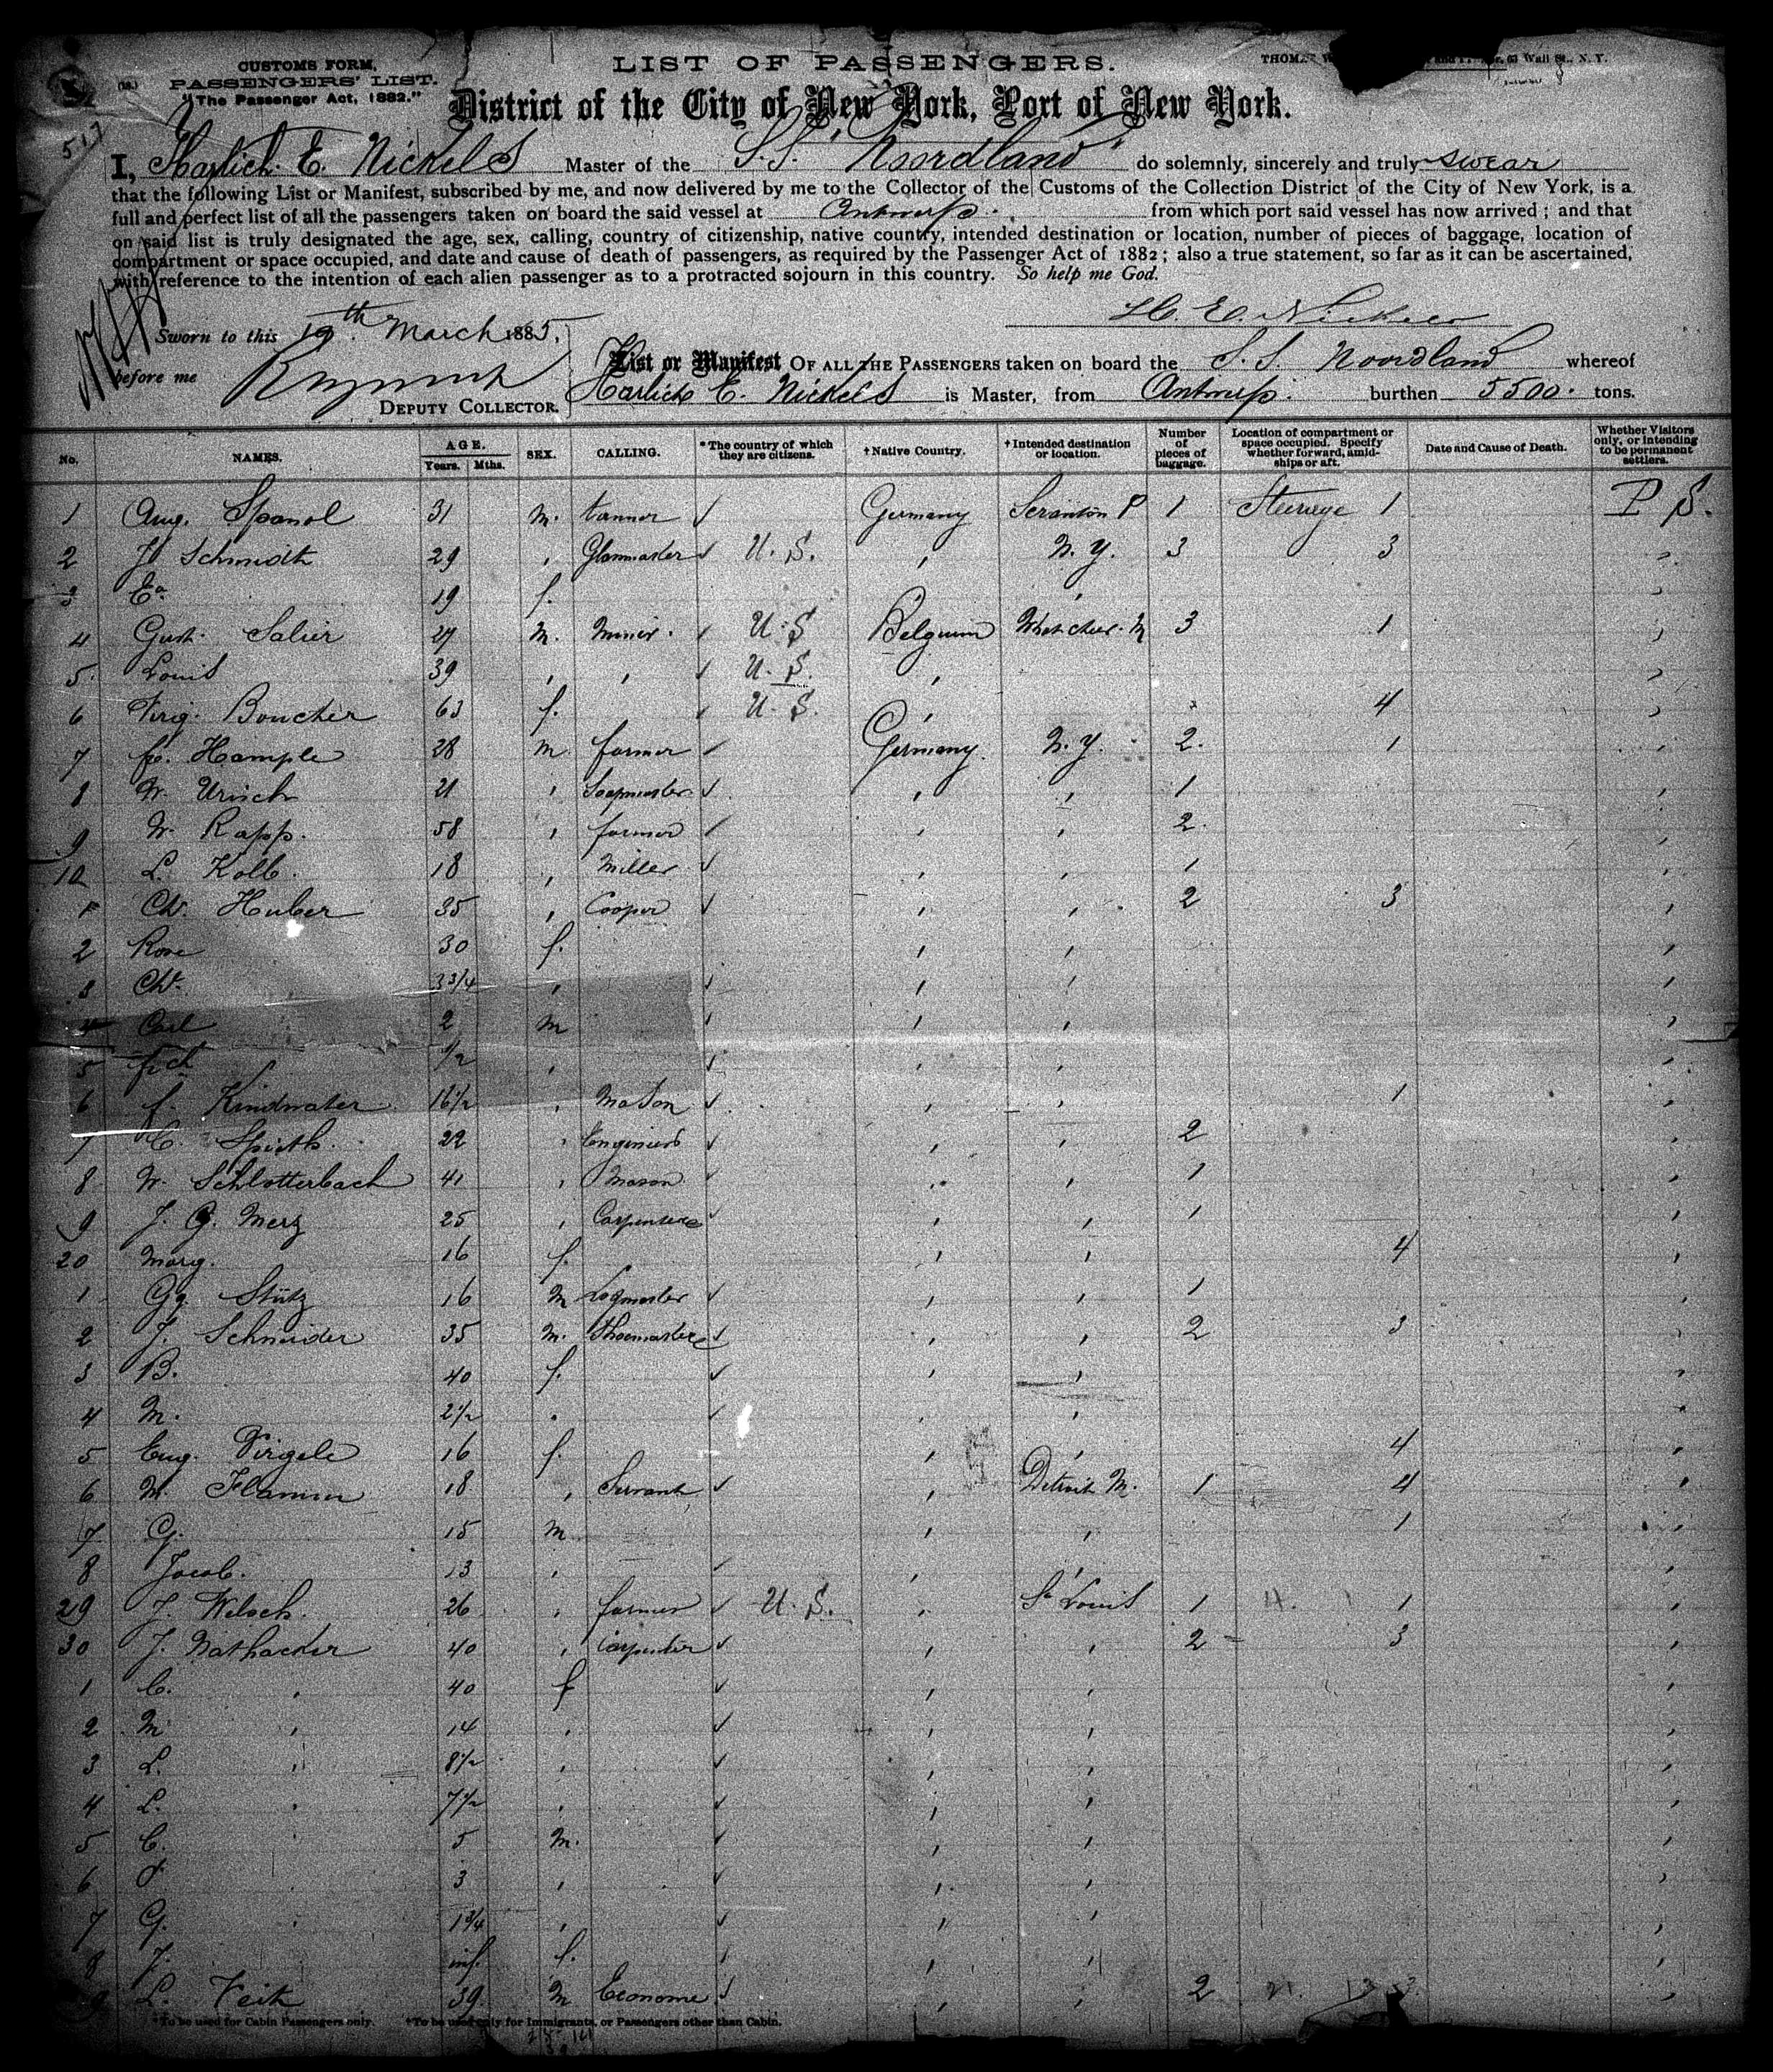 CUSTOMS FORM,
PASSENGERS' LIST.
"The Passenger Act, 1882."
LIST OF PASSENGERS.
Wall St., N. Y.
District of the City of New York, Port of New York.
517
I, Harlich E. Nickels Master of the S.S. "Noordland" do solemnly, sincerely and truly swear
that the following List or Manifest, subscribed by me, and now delivered by me to the Collector of the Customs of the Collection District of the City of New York, is a
full and perfect list of all the passengers taken on board the said vessel at Antwerp from which port said vessel has now arrived ; and that
on said list is truly designated the age, sex, calling, country of citizenship, native country, intended destination or location, number of pieces of baggage, location of
compartment or space occupied, and date and cause of death of passengers, as required by the Passenger Act of 1882 ; also a true statement, so far as it can be ascertained,
with reference to the intention of each alien passenger as to a protracted sojourn in this country. So help me God.
H. E. Nickels
Sworn to this 19th March 1885,
before me
DEPUTY COLLECTOR.
List or Manifest OF ALL THE PASSENGERS taken on board the S. S. Noordland whereof
Harlich E. Nickels is Master, from Antwerp. burthen 5500. tons.
No. NAMES. AGE. Years. Mths. SEX. CALLING. *The country of which they are citizens. †Native Country. †Intended destination or location. Number of pieces of baggage. Location of compartment or space occupied. Specify whether forward, amidships or aft. Date and Cause of Death. Whether Visitors only, or intending to be permanent settlers.
1 Aug. Spanol 31 m. tanner ✓ Germany Scranton P 1 Steerage 1 P S.
2 J Schmidt 29 , ✓ U. S. , N. Y. 3 3 ,
3 Ea. 19 f. , , ,
4 Gust. Salier 27 m. Miner. ✓ U. S Belgium 3 1 ,
5. Louis 39 , , ✓ U. S. , ,
6 Virg. Boucher 63 f. ✓ U. S. , 4 ,
7 fr. Hample 28 m. farmer ✓ Germany. N. Y. 2. 1 ,
8 W. Urich 21 , ✓ , , 1 ,
9 W. Rapp. 58 , farmer ✓ , , 2. ,
10 L. Kolb. 18 , Miller ✓ , , 1 ,
1 Ch. Huber 35 , Cooper ✓ , , 2 3 ,
2 Rose 30 f. , , ,
3 Chr. 3 3/4 , ✓ , , ,
4 Carl 2 m ✓ , , ,
5 1/2 , ✓ , , ,
6 f. Kindwater 16 1/2 , Mason ✓ , , 1 ,
7 C. Speth. 22 , Engineer ✓ , , 2 ,
8 W. Schlotterbach 41 , Mason ✓ , , 1 ,
9 J. G. Merz 25 , Carpenter ✓ , , 1 ,
20 Marg. 16 f. , , 4 ,
1 Gg. Stütz 16 m ✓ , , 1 ,
2 J. Schneider 35 m. Shoemaker ✓ , , 2 3 ,
3 B. 40 f. ✓ , , ,
4 M. 2 1/2 , ✓ , , ,
5 Eug. Virgele 16 f. , , 4 ,
6 M. Flamm 18 , Servant ✓ , Detroit M. 1 4 ,
7 G. 15 m , , 1 ,
8 Jacob. 13 , ✓ , , ,
29 J. Welsch. 26 , farmer ✓ U. S. , St Louis 1 1 ,
30 J. Nathacker 40 , Carpenter ✓ , , 2 3 ,
1 C. , 40 f ✓ , , ,
2 M. , 14 , ✓ , , ,
3 L. , 8 1/2 , ✓ , , ,
4 L. , 7 1/2 , ✓ , , ,
5 C. , 5 m. ✓ , , ,
6 , 3 , ✓ , , ,
7 G. , 1 3/4 , ✓ , , ,
8 J. inf. f. ✓ , , ,
9 L. Veit 39 m Econome ✓ , , 2
*To be used for Cabin Passengers only. †To be used only for Immigrants, or Passengers other than Cabin.